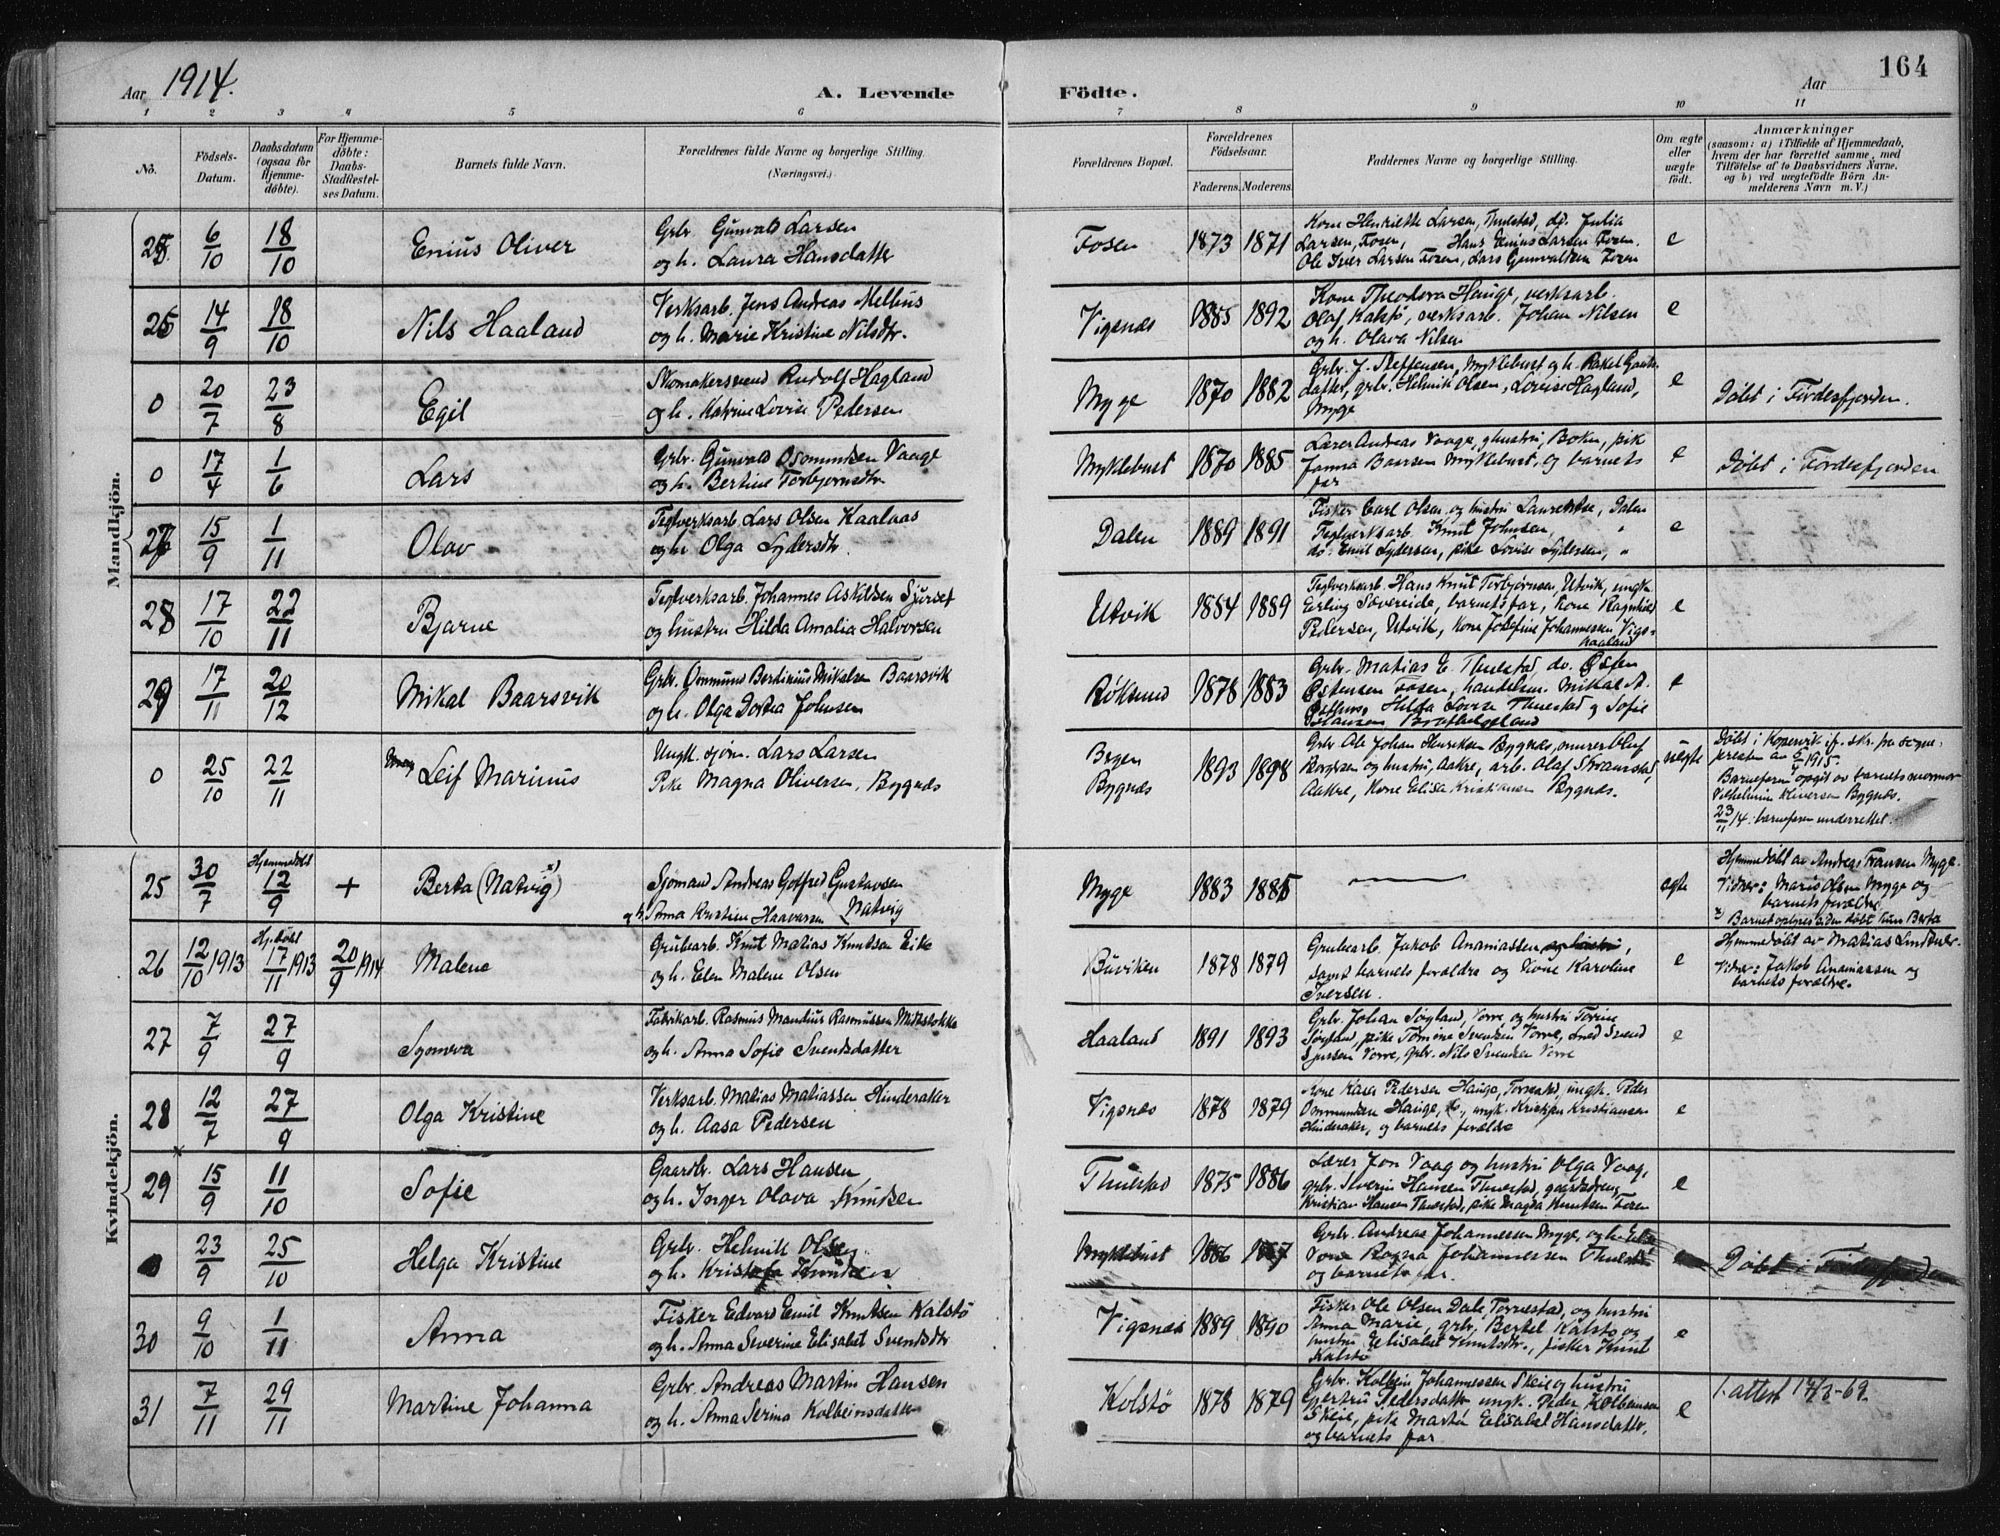 Aar 1914.
A. Levende
Födte.
Aar
164
1 2 3 4 5 6 7 8 9 10 11
No.
Födsels-
Datum.
Daabsdatum
(ogsaa for
Hjemme-
döbte).
For Hjemme-
döbte:
Daabs-
Stadfestel-
ses Datum.
Barnets fulde Navn.
Forældrenes fulde Navne og borgerlige Stilling.
(Næringsvei.)
Forældrenes Bopæl.
Forældrenes
Födselsaar.
Faderens. Moderens.
Faddernes Navne og borgerlige Stilling.
Om ægte
eller
uægte
födt.
Anmærkninger
(saasom: a) i Tilfælde af Hjemmedaab,
hvem der har forrettet samme, med
Tilföielse af to Daabsvidners Navne.
og b) ved uægtefödte Börn An-
melderens Navn m. V.)
Mandkjön.
25 6/10 18/10 Enius Oliver
Grbr. Gunvald Larsen
og h. Laura Hansdatter
Fosen 1873 1871
Kone Henriette Larsen, Thuestad, do. Julia
Larsen, Fosen, Hans Enius Larsen Fosen.
Ole Iver Larsen Fosen, Lars Gunvaldsen Fosen
e
14/9 18/10 Nils Haaland
Verksarb. Jens Andreas Melhus
og h. Marie Kristine Nilsdtr.
Vigsnæs 1885 1892
Kone Theodora Hauge, verksarb.
Olaf Kalstø, verksarb. Johan Nilsen
og h. Olava Nilsen
e
0 20/7 23/8 Egil
Skomakersvend Rudolf Hagland
og h. Katrine Lovise Pedersen
Myge 1870 1882
Grbr. J. Steffensen, Myklebust og h. Rakel
datter, grbr. Helmik Olsen, Lovise Hagland,
Myge
e
Döbt i Fördesfjorden.
0 17/4 1/6 Lars
Grbr. Gunvald Osmundsen Vaage
og h. Bertine Torbjørnsdtr
Myklebust 1870 1885
Lærer Andreas Vaage, og hustru, Bokn, pik
Janna Baarsen Myklebust, og barnets
far
e
Döbt i Fördesfjorden
27 15/9 1/11 Olav
Teglverksarb. Lars Olsen Kaalaas
og h. Olga Lydersdtr.
Dalen 1889 1891
Fisker Carl Olsen og hustru Laurentse, Dalen
Teglverksarb. Knut Johnsen, "
do. Emil Lydersen, pike Lovise Lydersen, "
e
28 17/10 22/11 Bjarne
Teglverksarb. Johannes Askildsen Sjurset
og hustru Hilda Amalia Halvorsen
Utvik 1884 1889
Teglverksarb. Hans Knut Torbjørnsen, Utvik, ungk.
Erling Sævereide, barnets far, kone Ragnhild
Pedersen, Utvik, kone Josefine Johannessen Vigs-
haaland
e
29 17/11 20/12 Mikal Baarsvik
Grbr. Ommund Berdinius Mikalsen Baarsvik
og h. Olga Dortea Johnsen
Røksund 1878 1883
Grbr. Matias E. Thuestad, do. Østen
Østensen Fosen, handelsm. Mikal A.
Østhus, Hilda Lovise Thuestad og Sofie
e
0 25/10 22/11 Leif Marinus
Ungk. sjøm. Lars Larsen
Pike Magna Oliversen, Bygnes
Bygnæs 1893 1898
Grbr. Ole Johan Henriksen Bygnæs, murer Oluf
Borgesen og hustru, Aakre, arb. Olaf
Aakre, Kone Elisa Kristiansen Bygnæs.
uægte
Döbt i Kopervik if. skr. fra sogne-
presten av 1915.
Barnefaren opgit av barnets mormor
Vilhelmine Oliversen Bygnæs.
23/11 14: barnefaren underrettet.
Kvindekjön.
25 30/7 Hjemmedöbt 12/9 + Berta (Natvig x))
Sjömand Andreas Gotfred Gustavsen
og h. Anna Kristine Haavarsen Natvig
Myge 1883 1885
ægte
Hjemmedöbt av Andreas Fransen Myge.
Vidner: Maris Olsen Myge og
barnets forældre
26 12/10 1913 Hj.döbt 17/11 1913 20/9 1914 Malene
Grubearb. Knut Matias Knutsen Eike
og h. Elen Malene Olsen
Buviken 1878 1879
Grubearb. Jakob Ananiassen og hustru,
samt barnets forældre og Kone Karoline
Iversen.
e
Hjemmedöbt av Matias
Vidner: Jakob Ananiassen og
barnets forældre.
27 7/9 27/9 Synneva
Fabrikarb. Rasmus Mandius Rasmussen Midtstokke
og h. Anna Sofie Svendsdatter
Haaland 1891 1893
Grbr. Johan Søgland, Vorre og hustru Torine
Søgland, pike Tomine Svendsen Vorre, smed Svend
Sjursen Vorre, grbr. Nils Svendsen Vorre
e
28 12/7 27/9 Olga Kristine
Verksarb. Matias Matiassen Hinderaker
og h. Aasa Pedersen
Vigsnæs 1878 1879
Kone Karen Pedersen Hauge, Tornestad, ungk. Peder
Ommundsen Hauge, ungk. Kristian Kristiansen
Hinderaker, og barnets forældre
e
29 15/9 11/10 Sofie
Gaardbr. Lars Hansen
og h. Inger Olava Knutsen
Thuestad 1875 1886
Lærer Jon Vaag og hustru Olga Vaag,
grbr. Severin Hansen Thuestad, gaardsdreng
Kristian Hansen Thuestad, pike Magda Knutsen Fosen
e
23/9 25/10 Helga Kristine
Grbr. Helmik Olsen
og h. Kristofa Knudsen
Myklebust 1886 1887
Grbr. Andreas Johannessen Myge, og h.
Kone Ragna Johannessen Thuestad
og barnets far.
Döbt i Fördesfjorden
30 9/10 1/11 Anna
Fisker Edvard Emil Knutsen Kalstø
og h. Anna Severine Elisabet Svendsdtr
Vigsnæs 1889 1890
Fisker Ole Olsen Dale Tornestad, og hustru
Anna Marie, grbr. Bertel Kalstø og
hustru Elisabet Knutsdtr., fisker Knut
Kalstø
e
31 7/11 29/11 Martine Johanna
Grbr. Andreas Martin Hansen
og h. Anna Serina Kolbeinsdatter
Kolstø 1878 1879
Grbr. Kolbein Johannessen Skeie og hustru
Gjertru Pedersdatter ungk. Peder Kolbeinsen
Skeie, pike Marta Elisabet Hansdatter,
og barnets far
e